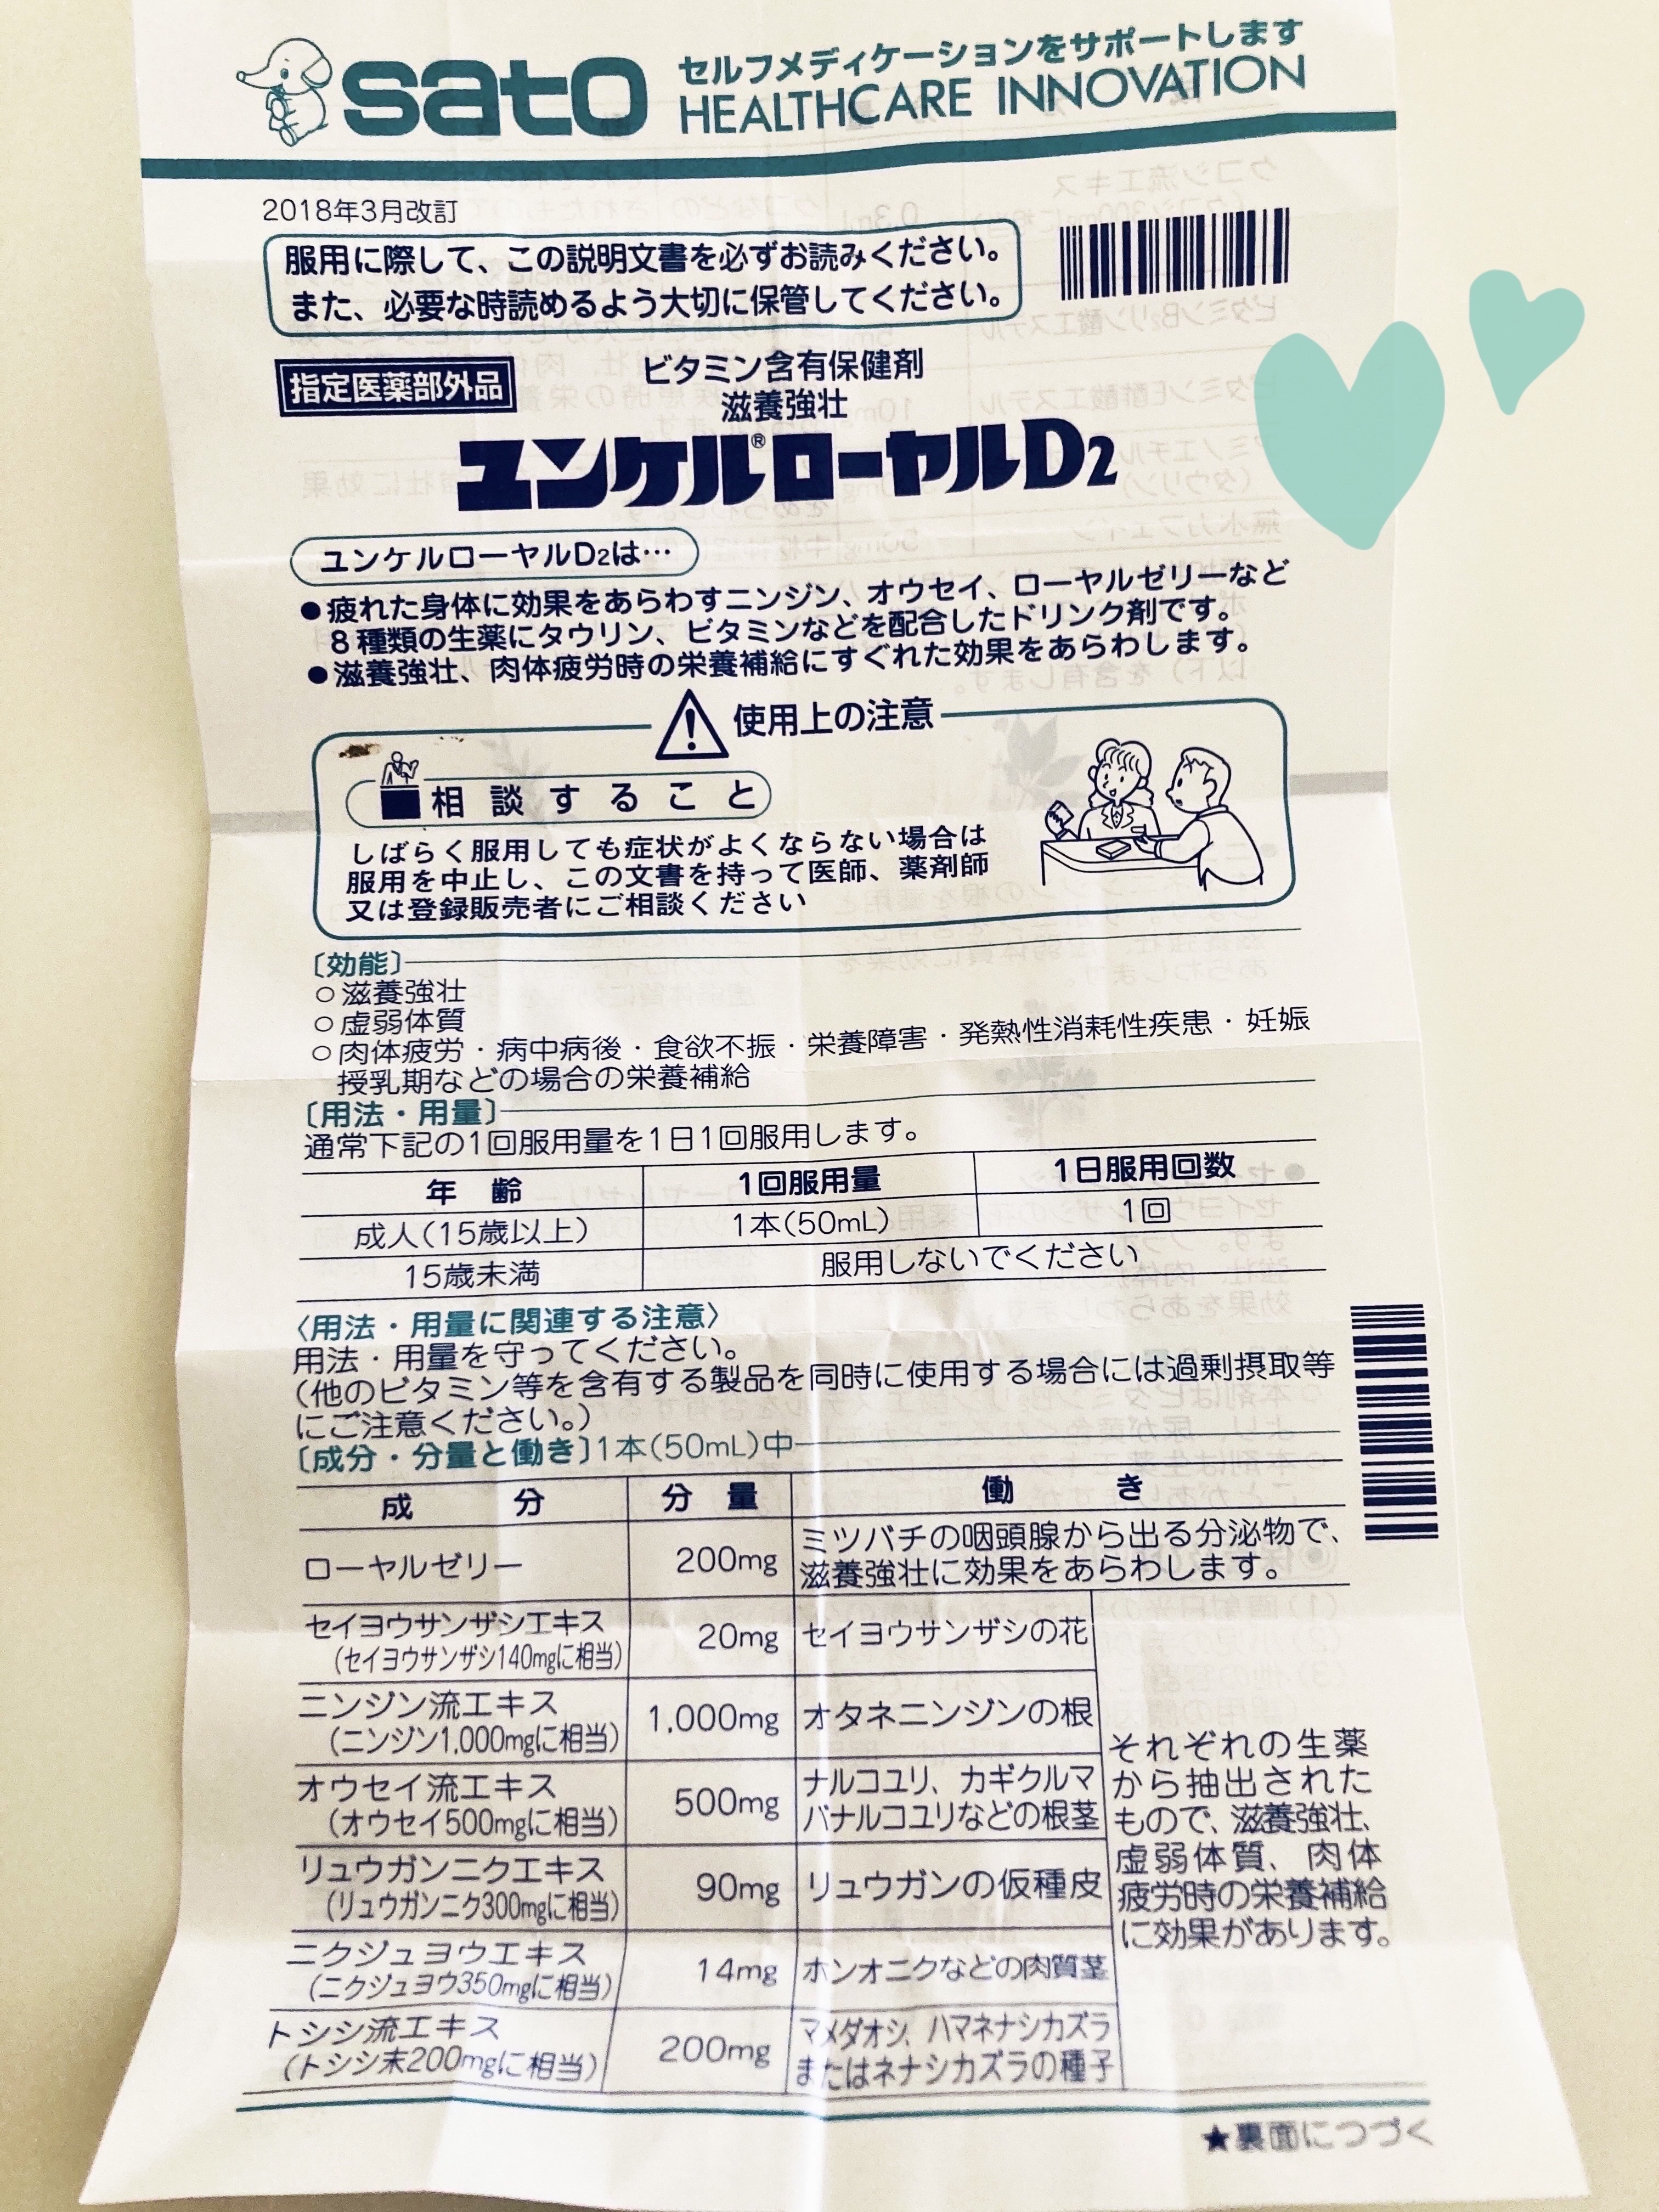 sato
セルフメディケーションをサポートします
HEALTHCARE INNOVATION
2018年3月改訂
服用に際して、この説明文書を必ずお読みください。
また、必要な時読めるよう大切に保管してください。
指定医薬部外品
ビタミン含有保健剤
滋養強壮
ユンケル®ローヤルD2
ユンケルローヤルD2は…
●疲れた身体に効果をあらわすニンジン、オウセイ、ローヤルゼリーなど
8種類の生薬にタウリン、ビタミンなどを配合したドリンク剤です。
●滋養強壮、肉体疲労時の栄養補給にすぐれた効果をあらわします。
使用上の注意
相談すること
しばらく服用しても症状がよくならない場合は
服用を中止し、この文書を持って医師、薬剤師
又は登録販売者にご相談ください
〔効能〕
○滋養強壮
○虚弱体質
○肉体疲労・病中病後・食欲不振・栄養障害・発熱性消耗性疾患・妊娠
授乳期などの場合の栄養補給
〔用法・用量〕
通常下記の1回服用量を1日1回服用します。
年齢 1回服用量 1日服用回数
成人(15歳以上) 1本(50mL) 1回
15歳未満 服用しないでください
〈用法・用量に関連する注意〉
用法・用量を守ってください。
(他のビタミン等を含有する製品を同時に使用する場合には過剰摂取等
にご注意ください。)
〔成分・分量と働き〕1本(50mL)中
成分 分量 働き
ローヤルゼリー 200mg ミツバチの咽頭腺から出る分泌物で、
滋養強壮に効果をあらわします。
セイヨウサンザシエキス
(セイヨウサンザシ140mgに相当) 20mg セイヨウサンザシの花
ニンジン流エキス
(ニンジン1,000mgに相当) 1,000mg オタネニンジンの根
オウセイ流エキス
(オウセイ500mgに相当) 500mg ナルコユリ、カギクルマ
バナルコユリなどの根茎
リュウガンニクエキス
(リュウガンニク300mgに相当) 90mg リュウガンの仮種皮
ニクジュヨウエキス
(ニクジュヨウ350mgに相当) 14mg ホンオニクなどの肉質茎
トシシ流エキス
(トシシ末200mgに相当) 200mg マメダオシ、ハマネナシカズラ
またはネナシカズラの種子
それぞれの生薬
から抽出された
もので、滋養強壮、
虚弱体質、肉体
疲労時の栄養補給
に効果があります。
★裏面につづく